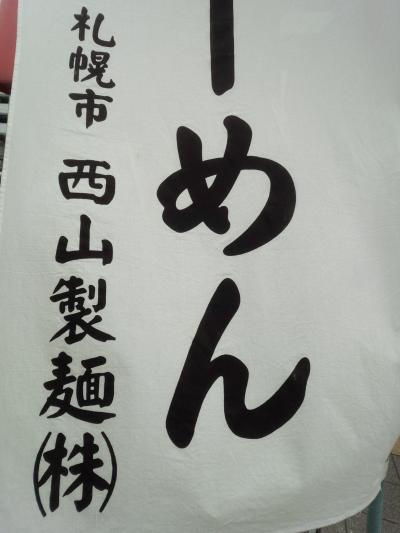 ーめん
札幌市 西山製麺(株)